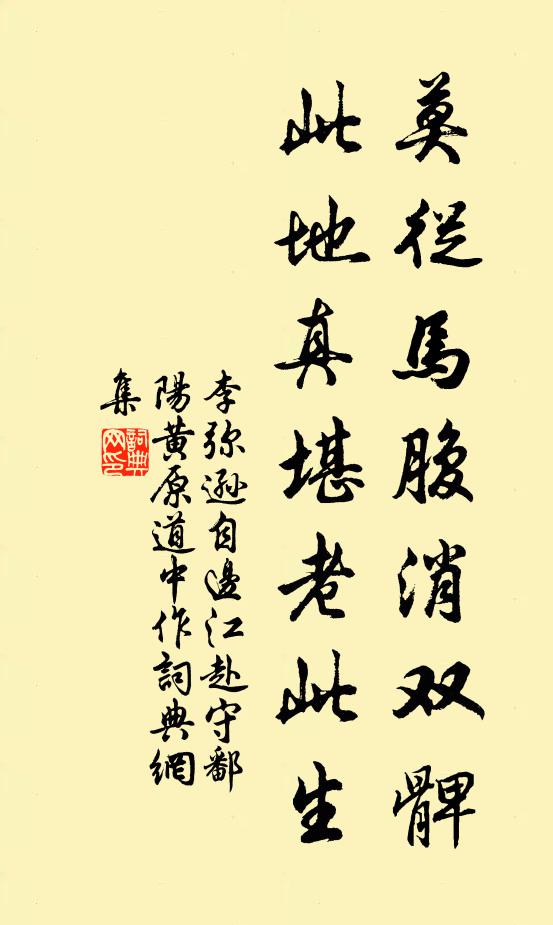 莫從馬腹消双髀
此地真堪老此生
李弥遜自邊江赴守鄱
陽黃原道中作詞典網
集
詞典
网印